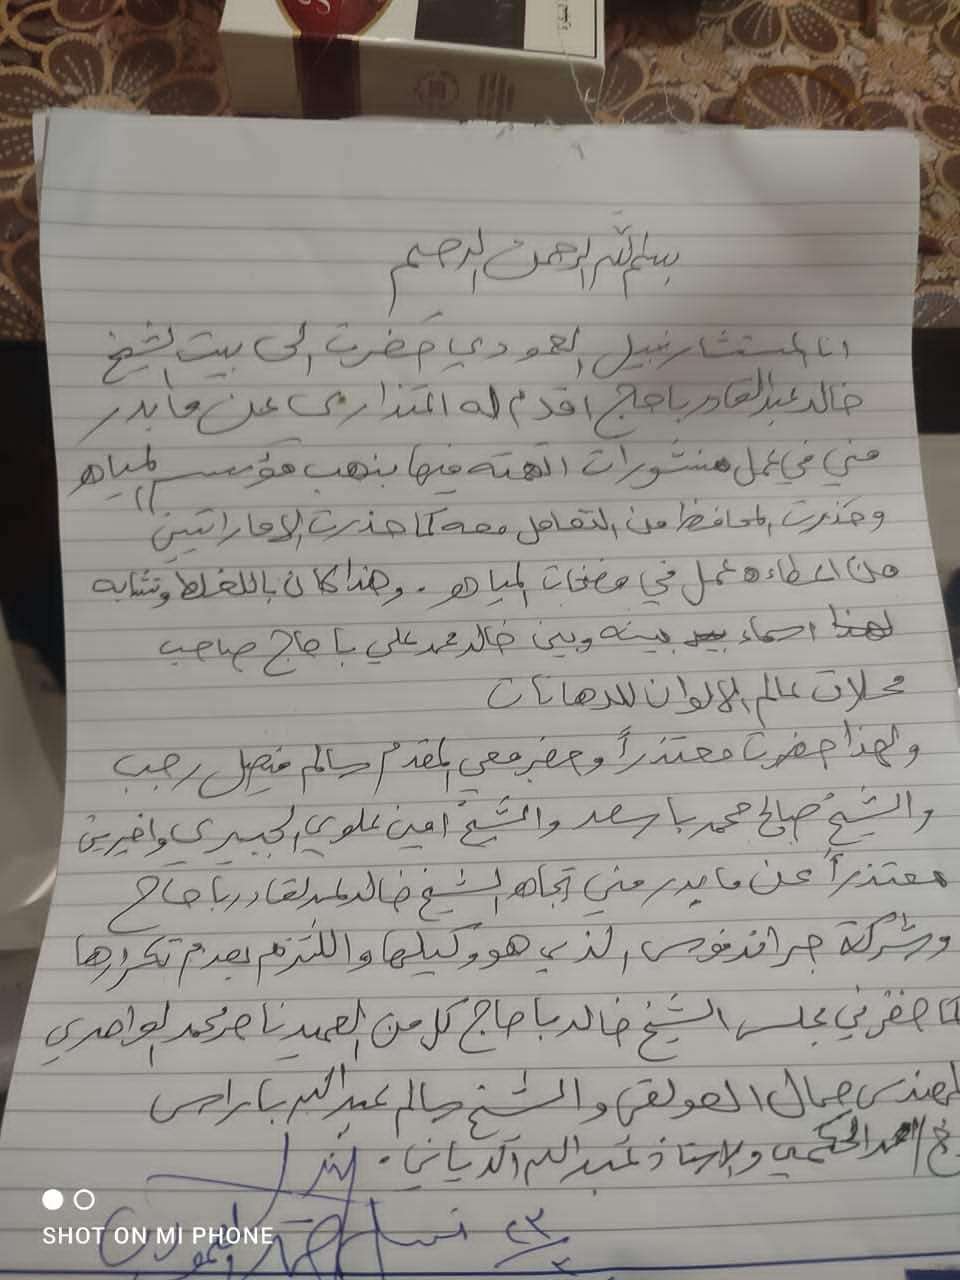 بسم الله الرحمن الرحيم
انا المستشار نبيل العمودي حضرت الى بيت الشيخ
خالد عبدالقادر باحاج اقدم له اعتذاري عن ما بدر
مني في عمل منشورات اتهمته فيها بنهب مؤسسه المياه
وحذرت المحافظ من التعامل معه كما حذرت الاماراتيين
من اعطاءه عمل في مضخات المياه. وهذا كان باللغلط وتشابه
لهذا اسماء بينه وبين خالد محمد علي باحاج صاحب
محلات عالم الالوان للدهانات
ولهذا حضرت معتذراً وحضر معي المقدم سالم فيصل رجب
والشيخ صالح محمد باسعد والشيخ امين علوي واخرين
معتذراً عن ما بدر مني تجاه الشيخ خالد عبدالقادر باحاج
وشركة جراندفوس الذي هو وكيلها والتزم بعدم تكرارها
كما حضر في مجلس الشيخ خالد باحاج كل من العميد ناصر محمد
المهندس جمال العولقي والشيخ سالم عبدالله باراس
احمد الحكمي والاستاذ عبدالله
نبيل احمد العمودي
SHOT ON MI PHONE